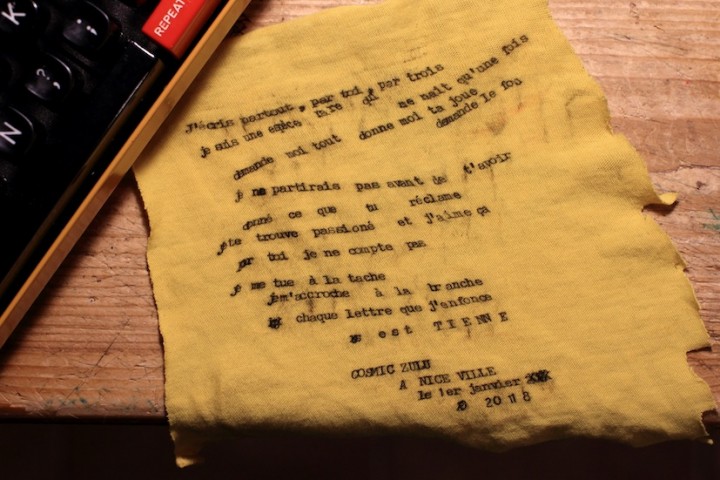 REPEAT
K
;
,
N
J'écris partout, par toi, par trois
je suis une espèce rare qui ne nait qu'une fois
demande moi tout donne moi ta joue
demande le fou
je ne partirais pas avant de t'avoir
donné ce que tu réclame
je te trouve passioné et j'aime ça
pr toi je ne compte pas
je me tue à la tache
je m'accroche à la branche
chaque lettre que j'enfonce
est TIENNE
COSMIC ZULU
A NICE VILLE
le 1er janvier
2018